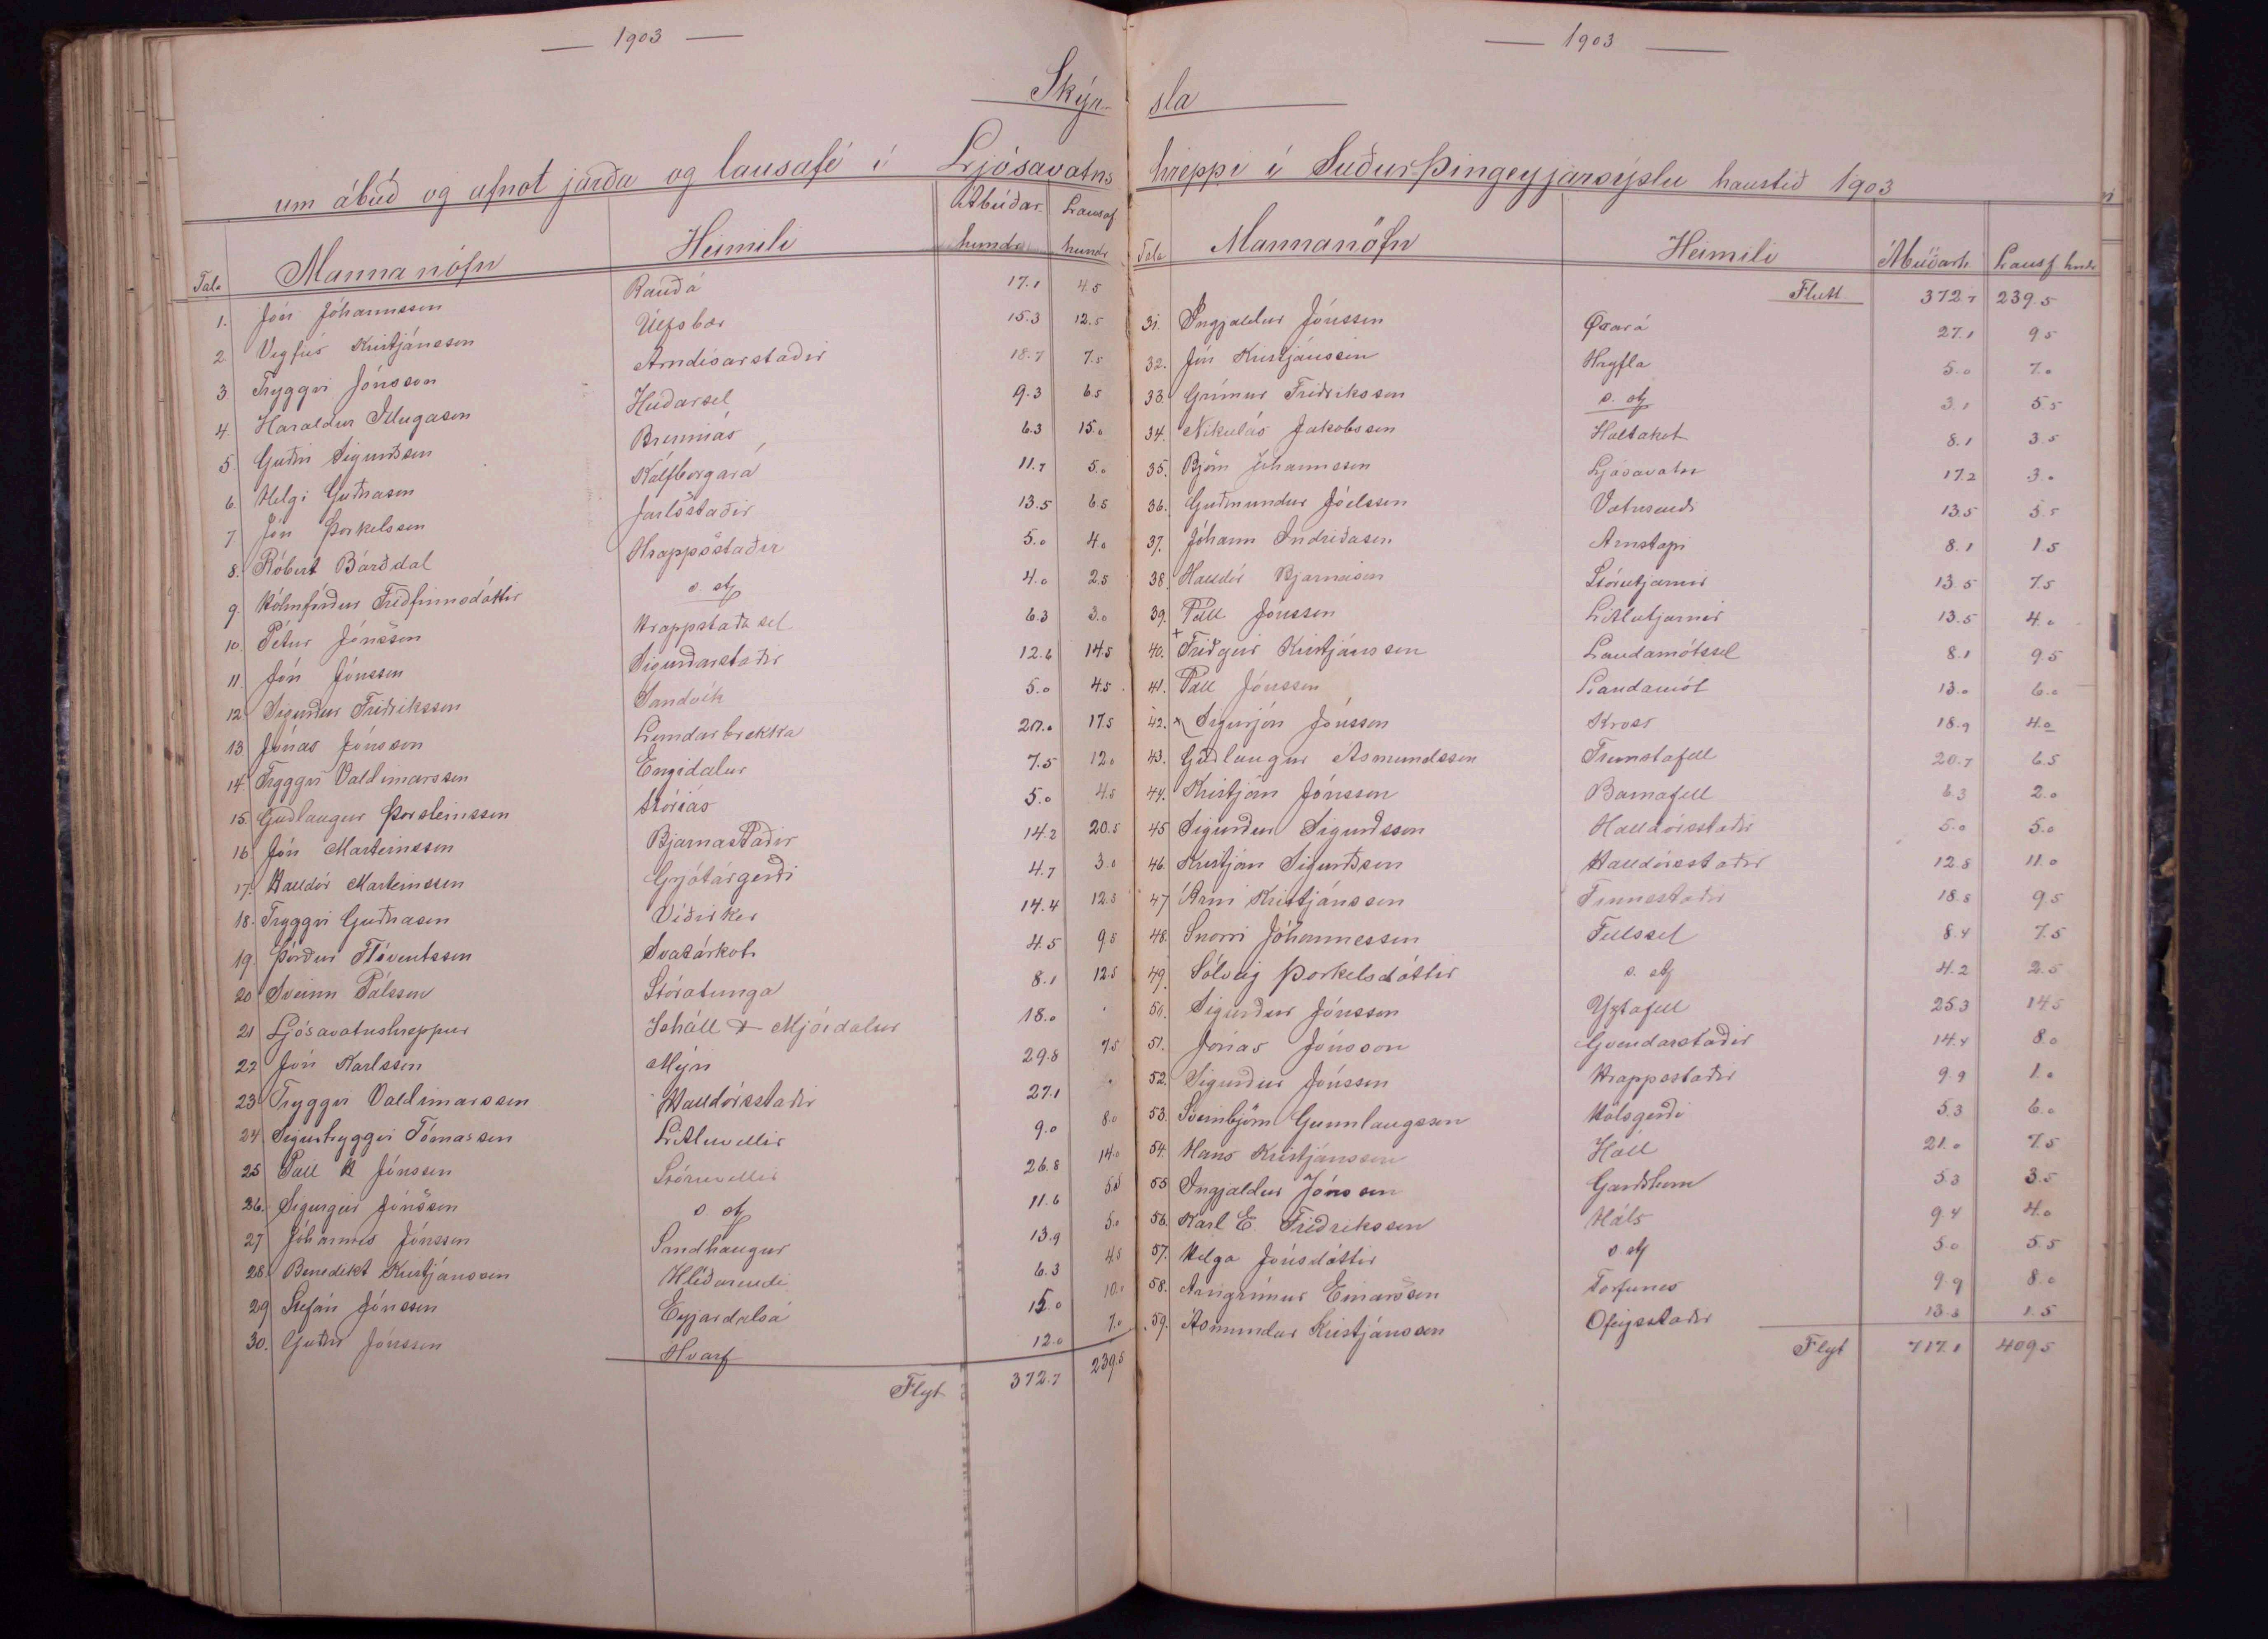 — 1903 —
Skýr-
um ábúð og afnot jarða og lausafé í Ljósavatns
Tala Mannanöfn Heimili Ábúðar hundr Lausaf hundr
1. Jón Jóhannsson Rauðá 17.1 4.5
2 Vigfús Kristjánsson Úlfsbær 15.3 12.5
3 Tryggvi Jónsson Arndísarstaðir 18.7 7.5
4. Haraldur Illugason Hlíðarsel 9.3 6.5
5. Guðni Sigurðsson Brennias 6.3 15.0
6. Helgi Guðnason Kálfborgará 11.7 5.0
7 Jón Þorkelsson Jarlsstaðir 13.5 6.5
8. Róbert Bárðdal Hrappsstaðir 5.0 4.0
9. Hólmfríður Friðfinnsdóttir s. st 4.0 2.5
10. Pétur Jónsson Hrappstaða sel 6.3 3.0
11. Jón Jónsson Sigurðarstaðir 12.6 14.5
12. Sigurður Friðriksson Sandvík 5.0 4.5
13 Jónas Jónsson Lundarbrekka 20.0 17.5
14 Tryggvi Valdimarsson Engidalur 7.5 12.0
15. Guðlaugur Þorsteinsson Stóriás 5.0 4.5
16 Jón Marteinsson Bjarnastaðir 14.2 20.5
17. Halldór Marteinsson Grjótárgerði 4.7 3.0
18. Tryggvi Guðnason Víðirker 14.4 12.5
19. Þórður Flóventsson Svatárkot 4.5 9.5
20 Sveinn Pálsson Stóratunga 8.1 12.5
21 Ljósavatnshreppur Ishóll & Mjóidalur 18.0 .
22 Jón Karlsson Mýri 29.8 7.5
23 Tryggvi Valdimarsson Halldórsstaðir 27.1 .
24 Sigurtryggvi Tómasson Litluvellir 9.0 8.0
25 Páll H Jónsson Stóruvellir 26.8 14.0
26. Sigurgeir Jónsson s st 11.6 5.5
27 Jóhannes Jónsson Sandhaugur 13.9 5.0
28. Benedikt Kristjánsson Hlíðarendi 6.3 4.5
29 Stefán Jónsson Eyjardalsá 15.0 10.0
30. Guðni Jónsson Hvarf 12.0 7.0
Flyt 372.7 239.5
— 1903 —
sla
hreppi í Suður-Þingeyjarsýslu haustið 1903
Tala Mannanöfn Heimili Ábúðarh Lausf hndr
Flutt 372.7 239.5
31. Ingjaldur Jónsson Öxará 27.1 9.5
32. Jón Kristjánsson Hryfla 5.0 7.0
33. Grímur Friðriksson s. st 3.1 5.5
34. Nikulás Jakobsson Holtakot 8.1 3.5
35. Björn Jóhannsson Ljósavatn 17.2 3.0
36. Guðmundur Jóelsson Vatnsendi 13.5 5.5
37. Jóhann Indriðason Arnstapi 8.1 1.5
38. Halldór Bjarnason Stórutjarnir 13.5 7.5
39. Páll Jónsson Litlutjarnir 13.5 4.0
+
40. Friðgeir Kristjánsson Landamótssel 8.1 9.5
41. Páll Jónsson Landamót 13.0 6.0
42. x Sigurjón Jónsson Kross 18.9 4.0
43. Guðlaugur Ásmundsson Fremstafell 20.7 6.5
44. Kristján Jónsson Barnafell 6.3 2.0
45 Sigurður Sigurðsson Halldórsstaðir 5.0 5.0
46. Kristján Sigurðsson Halldórsstaðir 12.8 11.0
47 Árni Kristjánsson Finnsstaðir 18.8 9.5
48. Snorri Jóhannesson Fellssel 8.4 7.5
49. Sólveig Þorkelsdóttir s. st 4.2 2.5
50. Sigurður Jónsson Yztafell 25.3 14.5
51. Jónas Jónsson Gvendarstaðir 14.4 8.0
52. Sigurður Jónsson Hrappsstaðir 9.9 1.0
53. Sveinbjörn Gunnlaugsson Hólsgerði 5.3 6.0
54. Hans Kristjánsson Hóll 21.0 7.5
55 Ingjaldur Jónsson Garðshorn 5.3 3.5
56. Karl E. Friðriksson Háls 9.4 4.0
57. Helga Jónsdóttir s. st 5.0 5.5
58. Arngrímur Einarsson Torfunes 9.9 8.0
59. Ásmundur Kristjánsson Ofeigsstaðir 13.5 1.5
Flyt 717.1 409.5